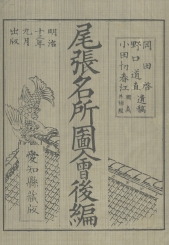 岡田啓
野口道直 遺稿
小田切春江
尾張名所圖會後編
明治
十三年
九月
出版
愛知縣藏版